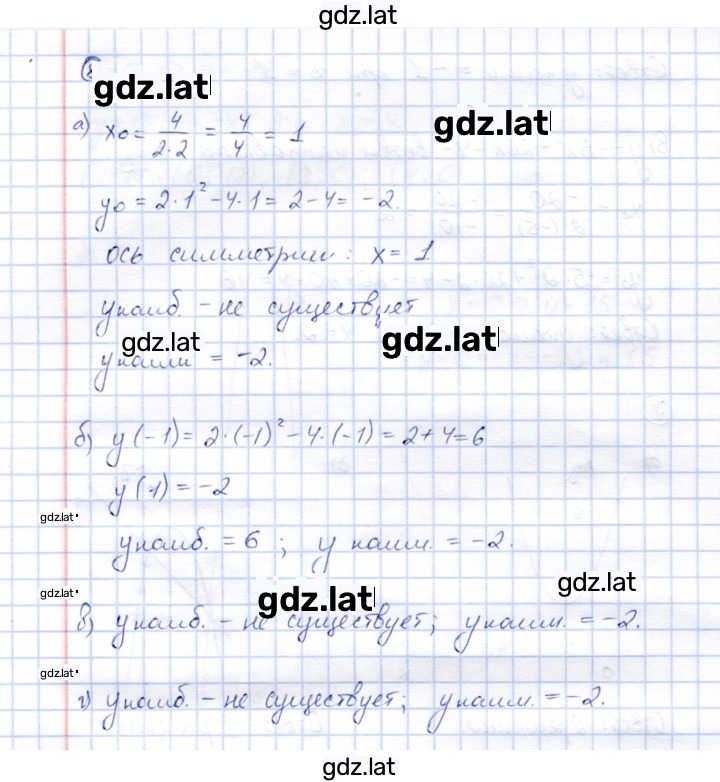 gdz.lat
gdz.lat
gdz.lat
а) x₀ = 4/2·2 = 4/4 = 1
y₀ = 2·1² - 4·1 = 2 - 4 = -2.
ось симметрии: x = 1
yнаиб. - не существует
gdz.lat
gdz.lat
yнаим = -2.
б) y(-1) = 2·(-1)² - 4·(-1) = 2 + 4 = 6
y(1) = -2
gdz.lat
yнаиб. = 6; y наим. = -2.
gdz.lat
gdz.lat
gdz.lat
в) yнаиб. - не существует; yнаим. = -2.
gdz.lat
г) yнаиб. - не существует; yнаим. = -2.
gdz.lat